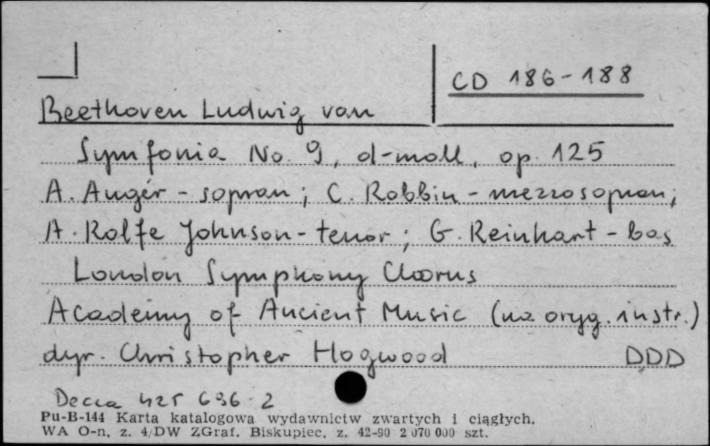 CD 186-188
Beethoven Ludwig van
Symfonia No. 9, d-moll, op. 125
A. Augér - sopran; C. Robbin - mezzosopran;
A. Rolfe Johnson - tenor; G. Reinhart - bas
London Symphony Chorus
Academy of Ancient Music (na oryg. instr.)
dyr. Christopher Hogwood DDD
Decca 425 636-2
Pu-B-144 Karta katalogowa wydawnictw zwartych i ciągłych.
WA O-n, z. 4/DW ZGraf. Biskupiec, z. 42-90 2 070 000 szt.